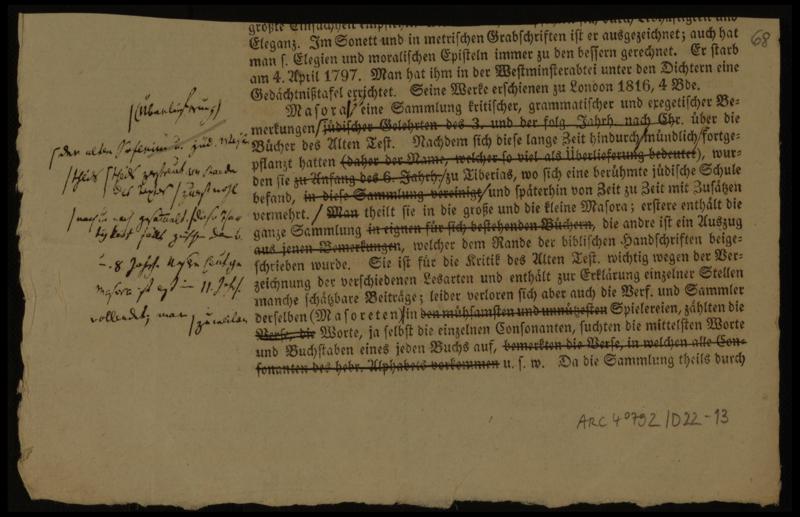 68
Eleganz. Im Sonett und in metrischen Grabschriften ist er ausgezeichnet; auch hat
man s. Elegien und moralischen Episteln immer zu den bessern gerechnet. Er starb
am 4. April 1797. Man hat ihm in der Westminsterabtei unter den Dichtern eine
Gedächtnißtafel errichtet. Seine Werke erschienen zu London 1816, 4 Bde.
Masora, eine Sammlung kritischer, grammatischer und exegetischer Be-
merkungen jüdischer Gelehrten des 3. und der folg. Jahrh. nach Chr. über die
Bücher des Alten Test. Nachdem sich diese lange Zeit hindurch mündlich fortge-
pflanzt hatten (daher der Name, welcher so viel als Überlieferung bedeutet), wur-
den sie zu Anfang des 6. Jahrh. zu Tiberias, wo sich eine berühmte jüdische Schule
befand, in diese Sammlung vereinigt und späterhin von Zeit zu Zeit mit Zusätzen
vermehrt. Man theilt sie in die große und die kleine Masora; erstere enthält die
ganze Sammlung in eignen für sich bestehenden Büchern, die andre ist ein Auszug
aus jenen Bemerkungen, welcher dem Rande der biblischen Handschriften beige-
schrieben wurde. Sie ist für die Kritik des Alten Test. wichtig wegen der Ver-
zeichnung der verschiedenen Lesarten und enthält zur Erklärung einzelner Stellen
manche schätzbare Beiträge; leider verloren sich aber auch die Verf. und Sammler
derselben (Masoreten) in den mühsamsten und unnützesten Spielereien, zählten die
Verse, die Worte, ja selbst die einzelnen Consonanten, suchten die mittelsten Worte
und Buchstaben eines jeden Buchs auf, bemerkten die Verse, in welchen alle Con-
sonanten des hebr. Alphabets vorkommen u. s. w. Da die Sammlung theils durch
(Überlieferung)
der alten
nach u. nach gesammelt.
u. 8 Jahrh.
Masora ist erst im 11. Jahrh.
vollendet; man
ARC 4°792/D22-13